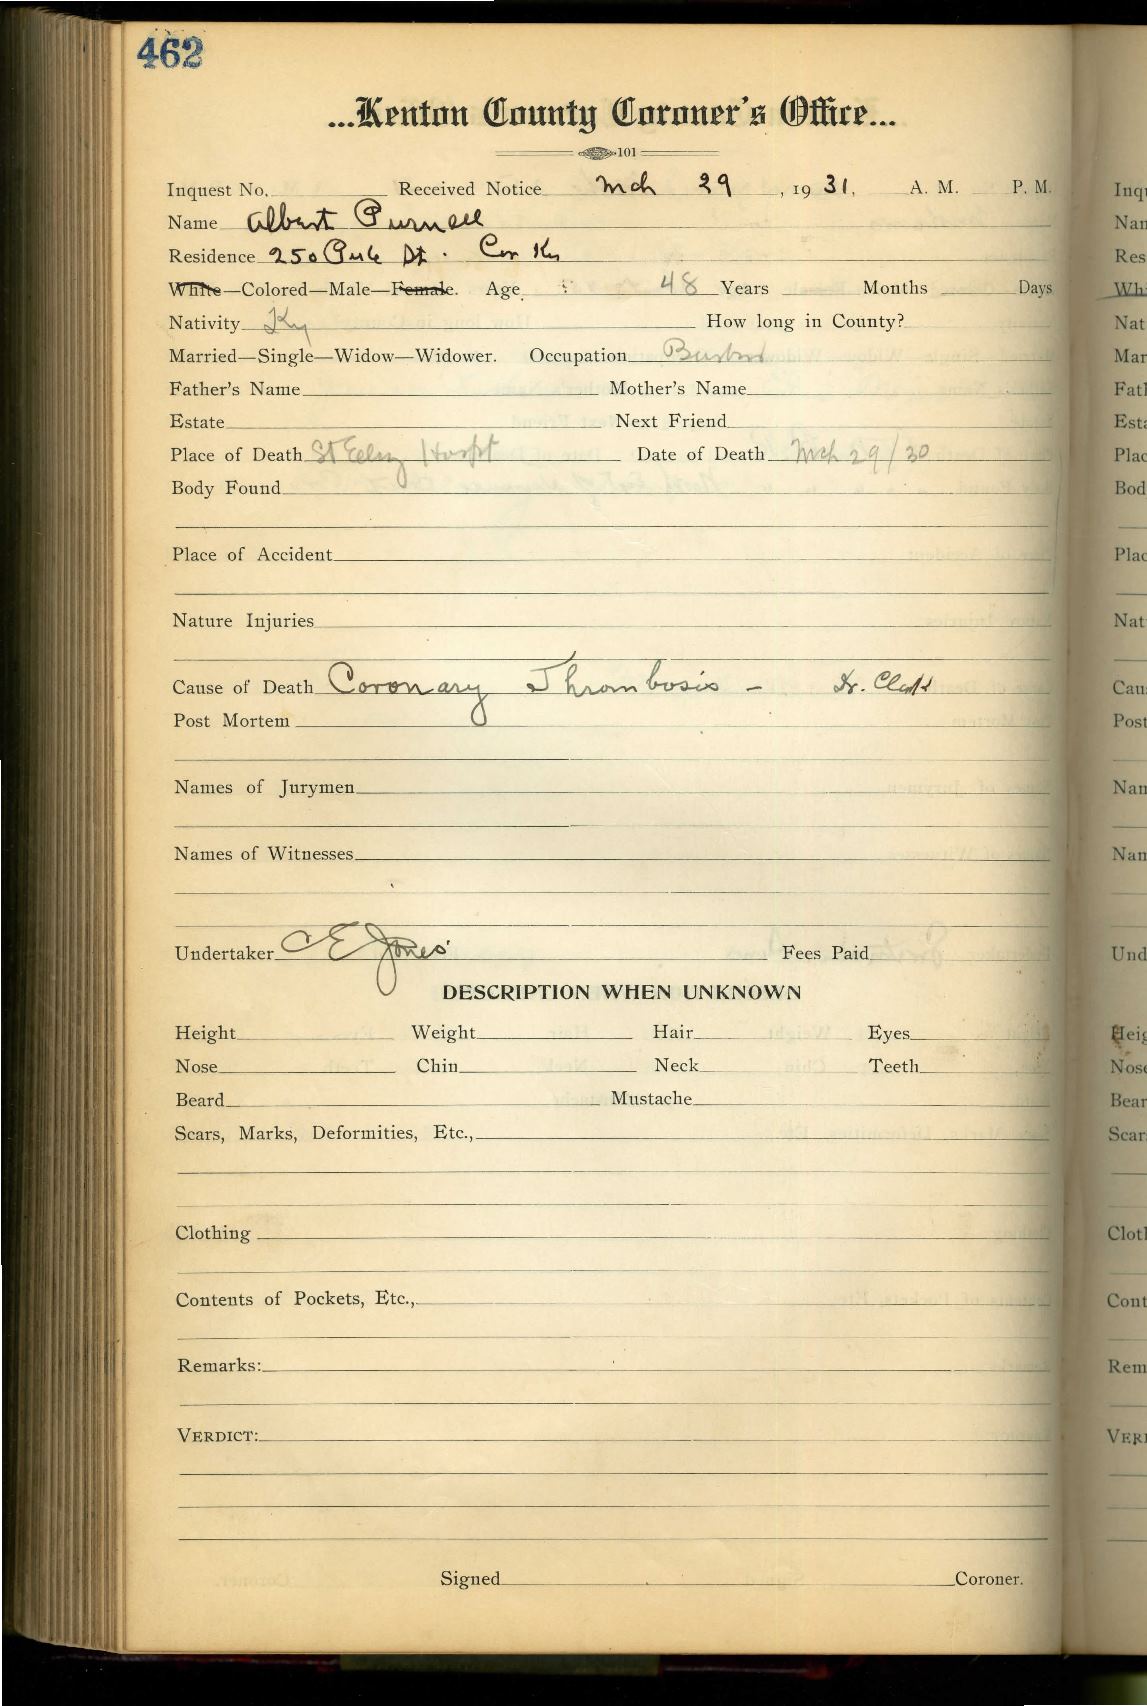 462
...Kenton County Coroner's Office...
101
Inquest No. Received Notice Mch 29, 1931. A. M. P. M.
Name Albert Purnell
Residence 250 St. Cov Ky
White—Colored—Male—Female. Age 48 Years Months Days
Nativity Ky How long in County?
Married—Single—Widow—Widower. Occupation
Father's Name Mother's Name
Estate Next Friend
Place of Death St Hospt Date of Death Mch 29/30
Body Found
Place of Accident
Nature Injuries
Cause of Death Coronary Thrombosis - Dr. Clark
Post Mortem
Names of Jurymen
Names of Witnesses
Undertaker C E Jones Fees Paid
DESCRIPTION WHEN UNKNOWN
Height Weight Hair Eyes
Nose Chin Neck Teeth
Beard Mustache
Scars, Marks, Deformities, Etc.,
Clothing
Contents of Pockets, Etc.,
Remarks:
VERDICT:
Signed Coroner.